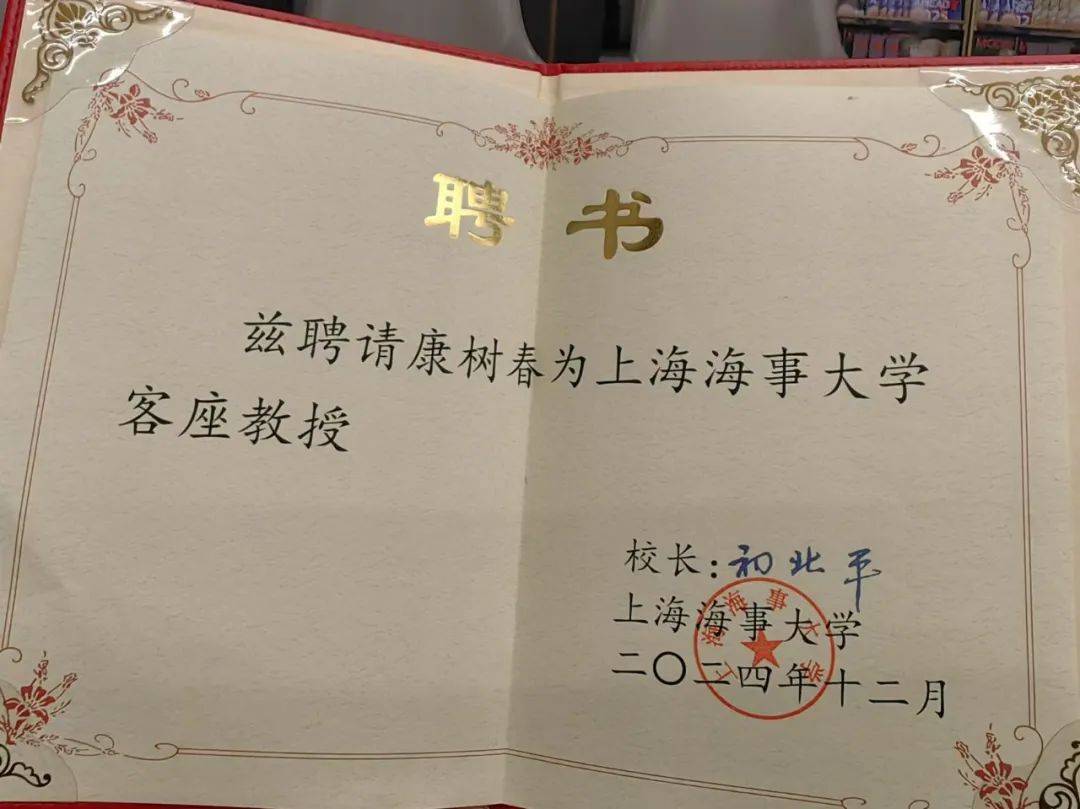 聘书
兹聘请康树春为上海海事大学
客座教授
校长:初北平
上海海事大学
二〇二四年十二月
上海海事大学